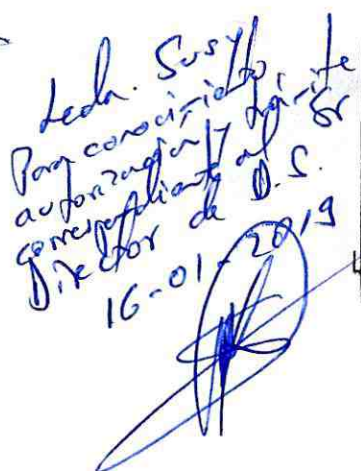 Lcda. Susy
Para conocimiento,
autorización y trámite
correspondiente al Sr
Director de D.S.
16-01-2019